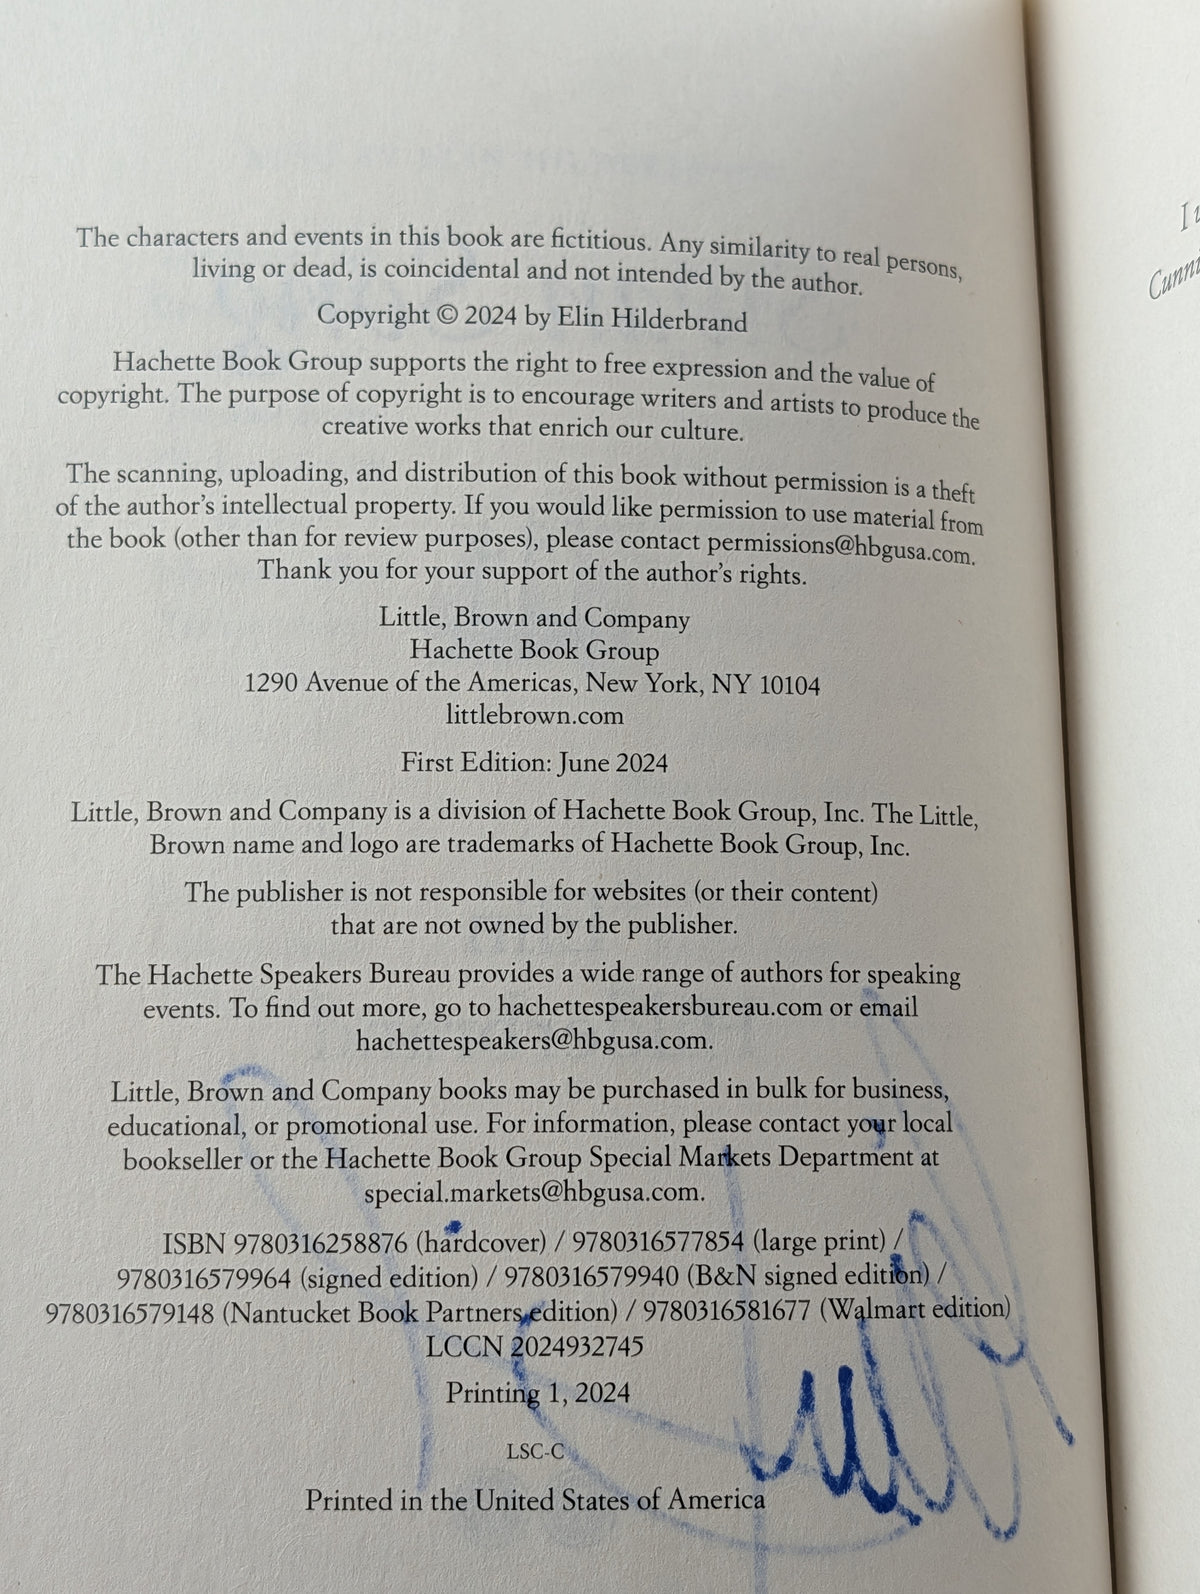 The characters and events in this book are fictitious. Any similarity to real persons,
living or dead, is coincidental and not intended by the author.
Copyright © 2024 by Elin Hilderbrand
Hachette Book Group supports the right to free expression and the value of
copyright. The purpose of copyright is to encourage writers and artists to produce the
creative works that enrich our culture.
The scanning, uploading, and distribution of this book without permission is a theft
of the author's intellectual property. If you would like permission to use material from
the book (other than for review purposes), please contact permissions@hbgusa.com.
Thank you for your support of the author's rights.
Little, Brown and Company
Hachette Book Group
1290 Avenue of the Americas, New York, NY 10104
littlebrown.com
First Edition: June 2024
Little, Brown and Company is a division of Hachette Book Group, Inc. The Little,
Brown name and logo are trademarks of Hachette Book Group, Inc.
The publisher is not responsible for websites (or their content)
that are not owned by the publisher.
The Hachette Speakers Bureau provides a wide range of authors for speaking
events. To find out more, go to hachettespeakersbureau.com or email
hachettespeakers@hbgusa.com.
Little, Brown and Company books may be purchased in bulk for business,
educational, or promotional use. For information, please contact your local
bookseller or the Hachette Book Group Special Markets Department at
special.markets@hbgusa.com.
ISBN 9780316258876 (hardcover) / 9780316577854 (large print) /
9780316579964 (signed edition) / 9780316579940 (B&N signed edition) /
9780316579148 (Nantucket Book Partners edition) / 9780316581677 (Walmart edition)
LCCN 2024932745
Printing 1, 2024
LSC-C
Printed in the United States of America